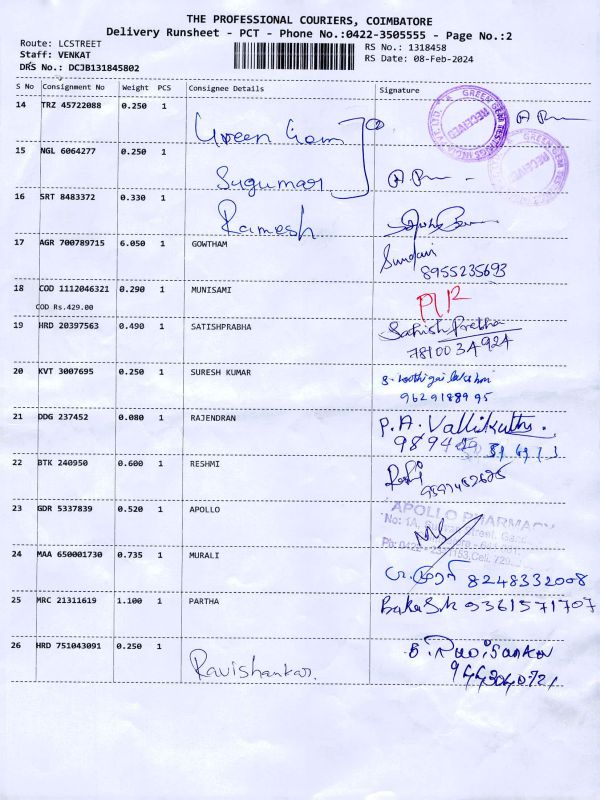 THE PROFESSIONAL COURIERS, COIMBATORE
Delivery Runsheet - PCT - Phone No.:0422-3505555 - Page No.:2
Route: LCSTREET
RS No.: 1318458
Staff: VENKAT
RS Date: 08-Feb-2024
DRS No.: DCJB131845802
S No Consignment No Weight PCS Consignee Details Signature
14 TRZ 45722088 0.250 1 Green Gem
RECEIVED
RECEIVED
15 NGL 6064277 0.250 1 Sugumar
16 SRT 8483372 0.330 1 Ramesh
17 AGR 700789715 6.050 1 GOWTHAM Sundari
8955235693
18 COD 1112046321 0.290 1 MUNISAMI
COD Rs.429.00
19 HRD 20397563 0.490 1 SATISHPRABHA Sathish Prabha
7810034924
20 KVT 3007695 0.250 1 SURESH KUMAR
9629188995
21 DDG 237452 0.080 1 RAJENDRAN P.A. Vallikuthi.
22 BTK 240950 0.600 1 RESHMI
23 GDR 5337839 0.520 1 APOLLO APOLLO PHARMACY
24 MAA 650001730 0.735 1 MURALI 8248332008
25 MRC 21311619 1.100 1 PARTHA 9361571707
26 HRD 751043091 0.250 1 Ravishankar.